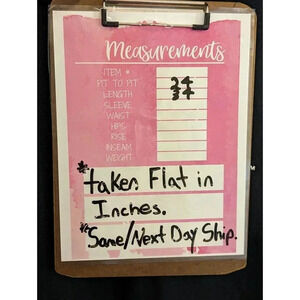 Measurements
ITEM #
PIT TO PIT 24
LENGTH 34
SLEEVE
WAIST
HIPS
RISE
INSEAM
WEIGHT
*taken Flat in
Inches.
*Same/Next Day Ship.